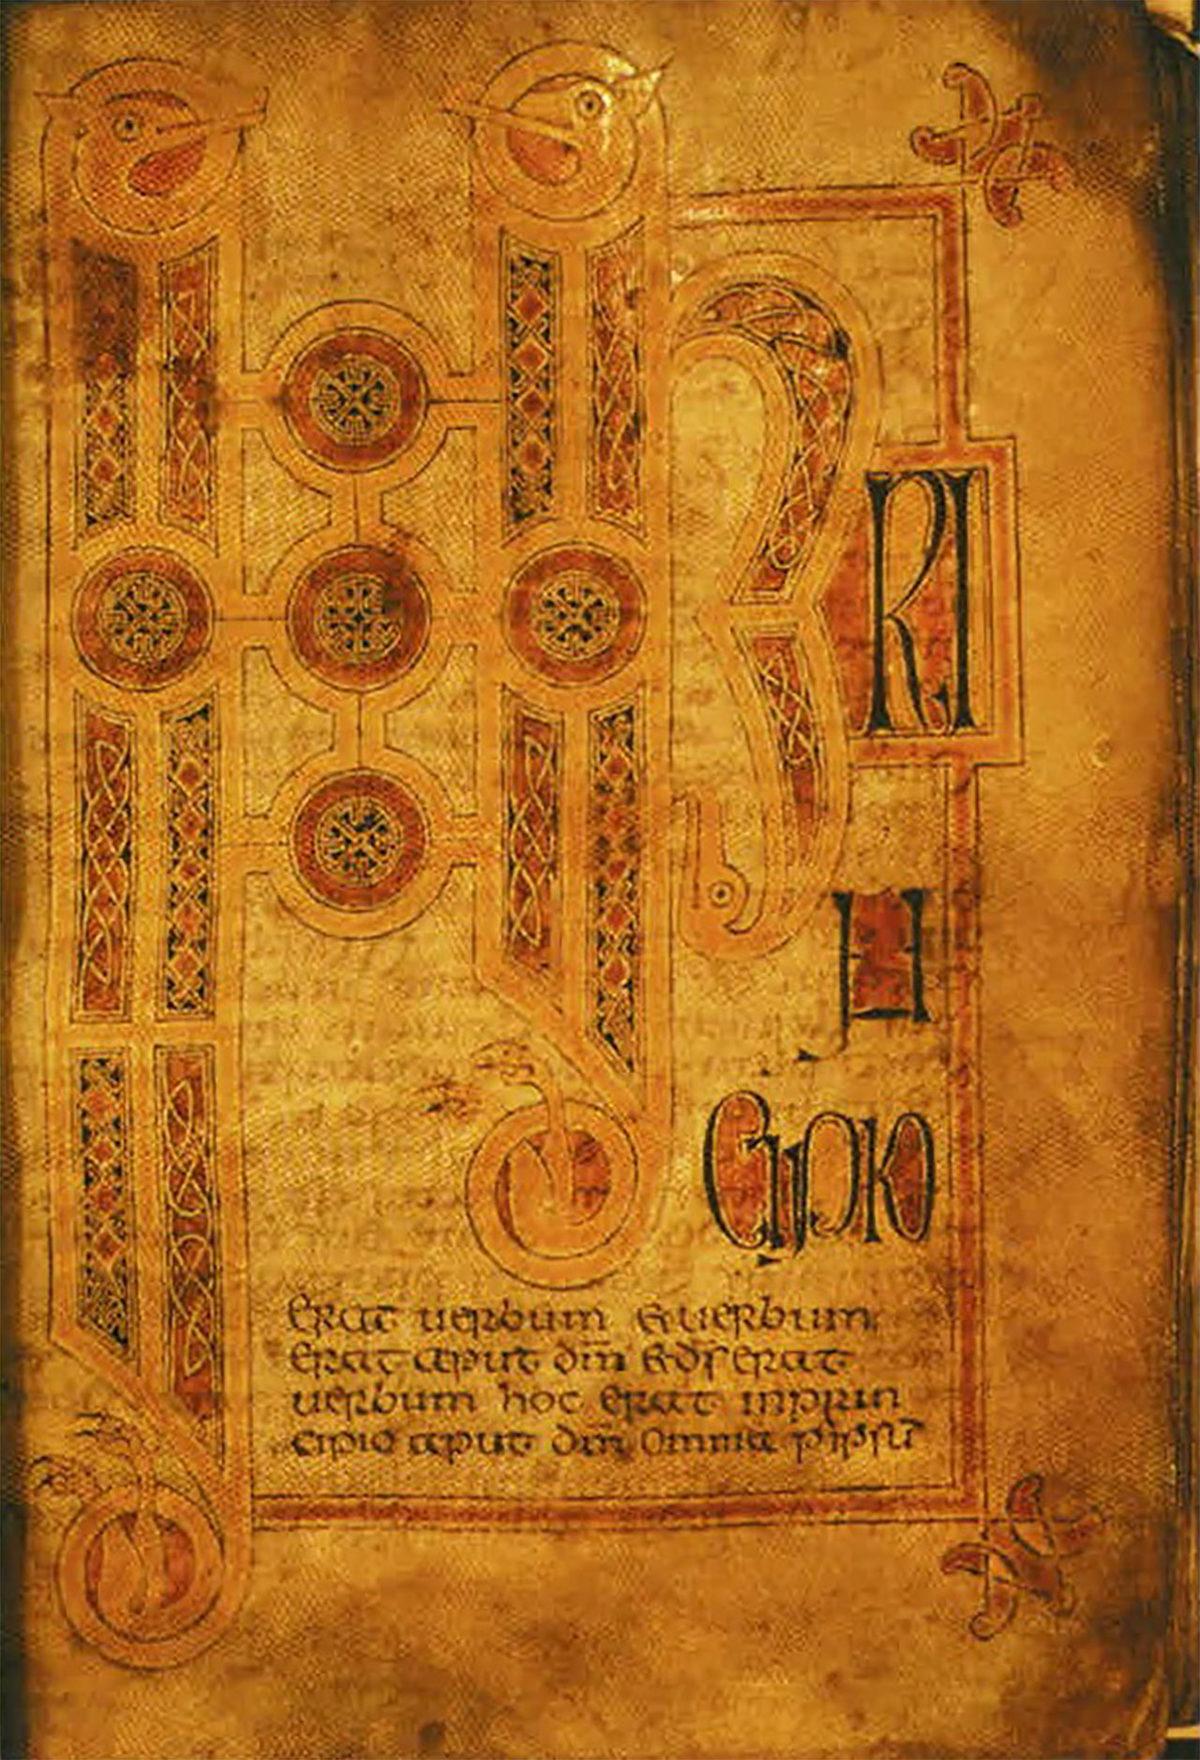 INP
RI
N
CIPIO
erat uerbum &uerbum
erat aput dm̄ &ds̄ erat
uerbum hoc erat inprin
cipio aput dm̄ Omnia p̱ ipsū